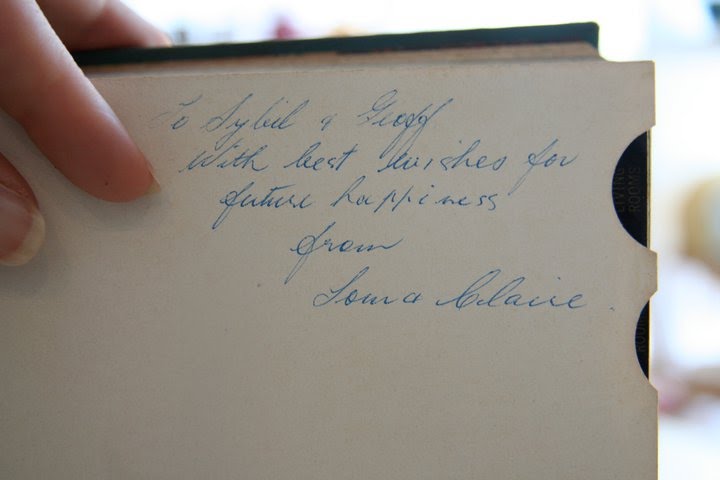 To Sybil & Geoff
With best wishes for
future happiness
from
Claire
LIVING
ROOMS